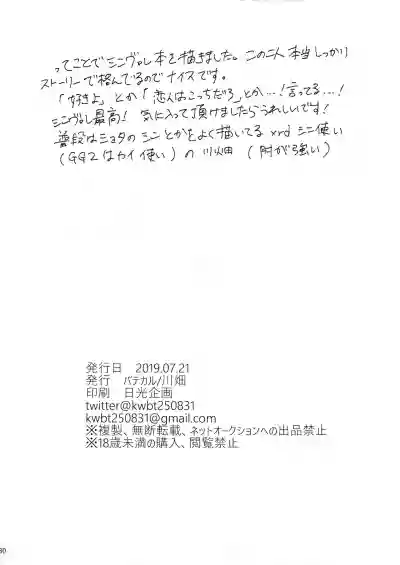 ってことでシンヴェノ本を描きました。この二人本当しっかり
ストーリーで絡んでるのでナイスです。
「好きよ」とか「恋人はこっちだろ」とか…！言ってる…！
最高！ 気に入って頂けましたらうれしいです！
普段はショタのシンとかをよく描いてる xrd シン使い
(GG2はカイ使い) の 川畑 ( が強い)
発行日 2019.07.21
発行 バテカル/川畑
印刷 日光企画
twitter@kwbt250831
kwbt250831@gmail.com
※複製、無断転載、ネットオークションへの出品禁止
※18歳未満の購入、閲覧禁止
30